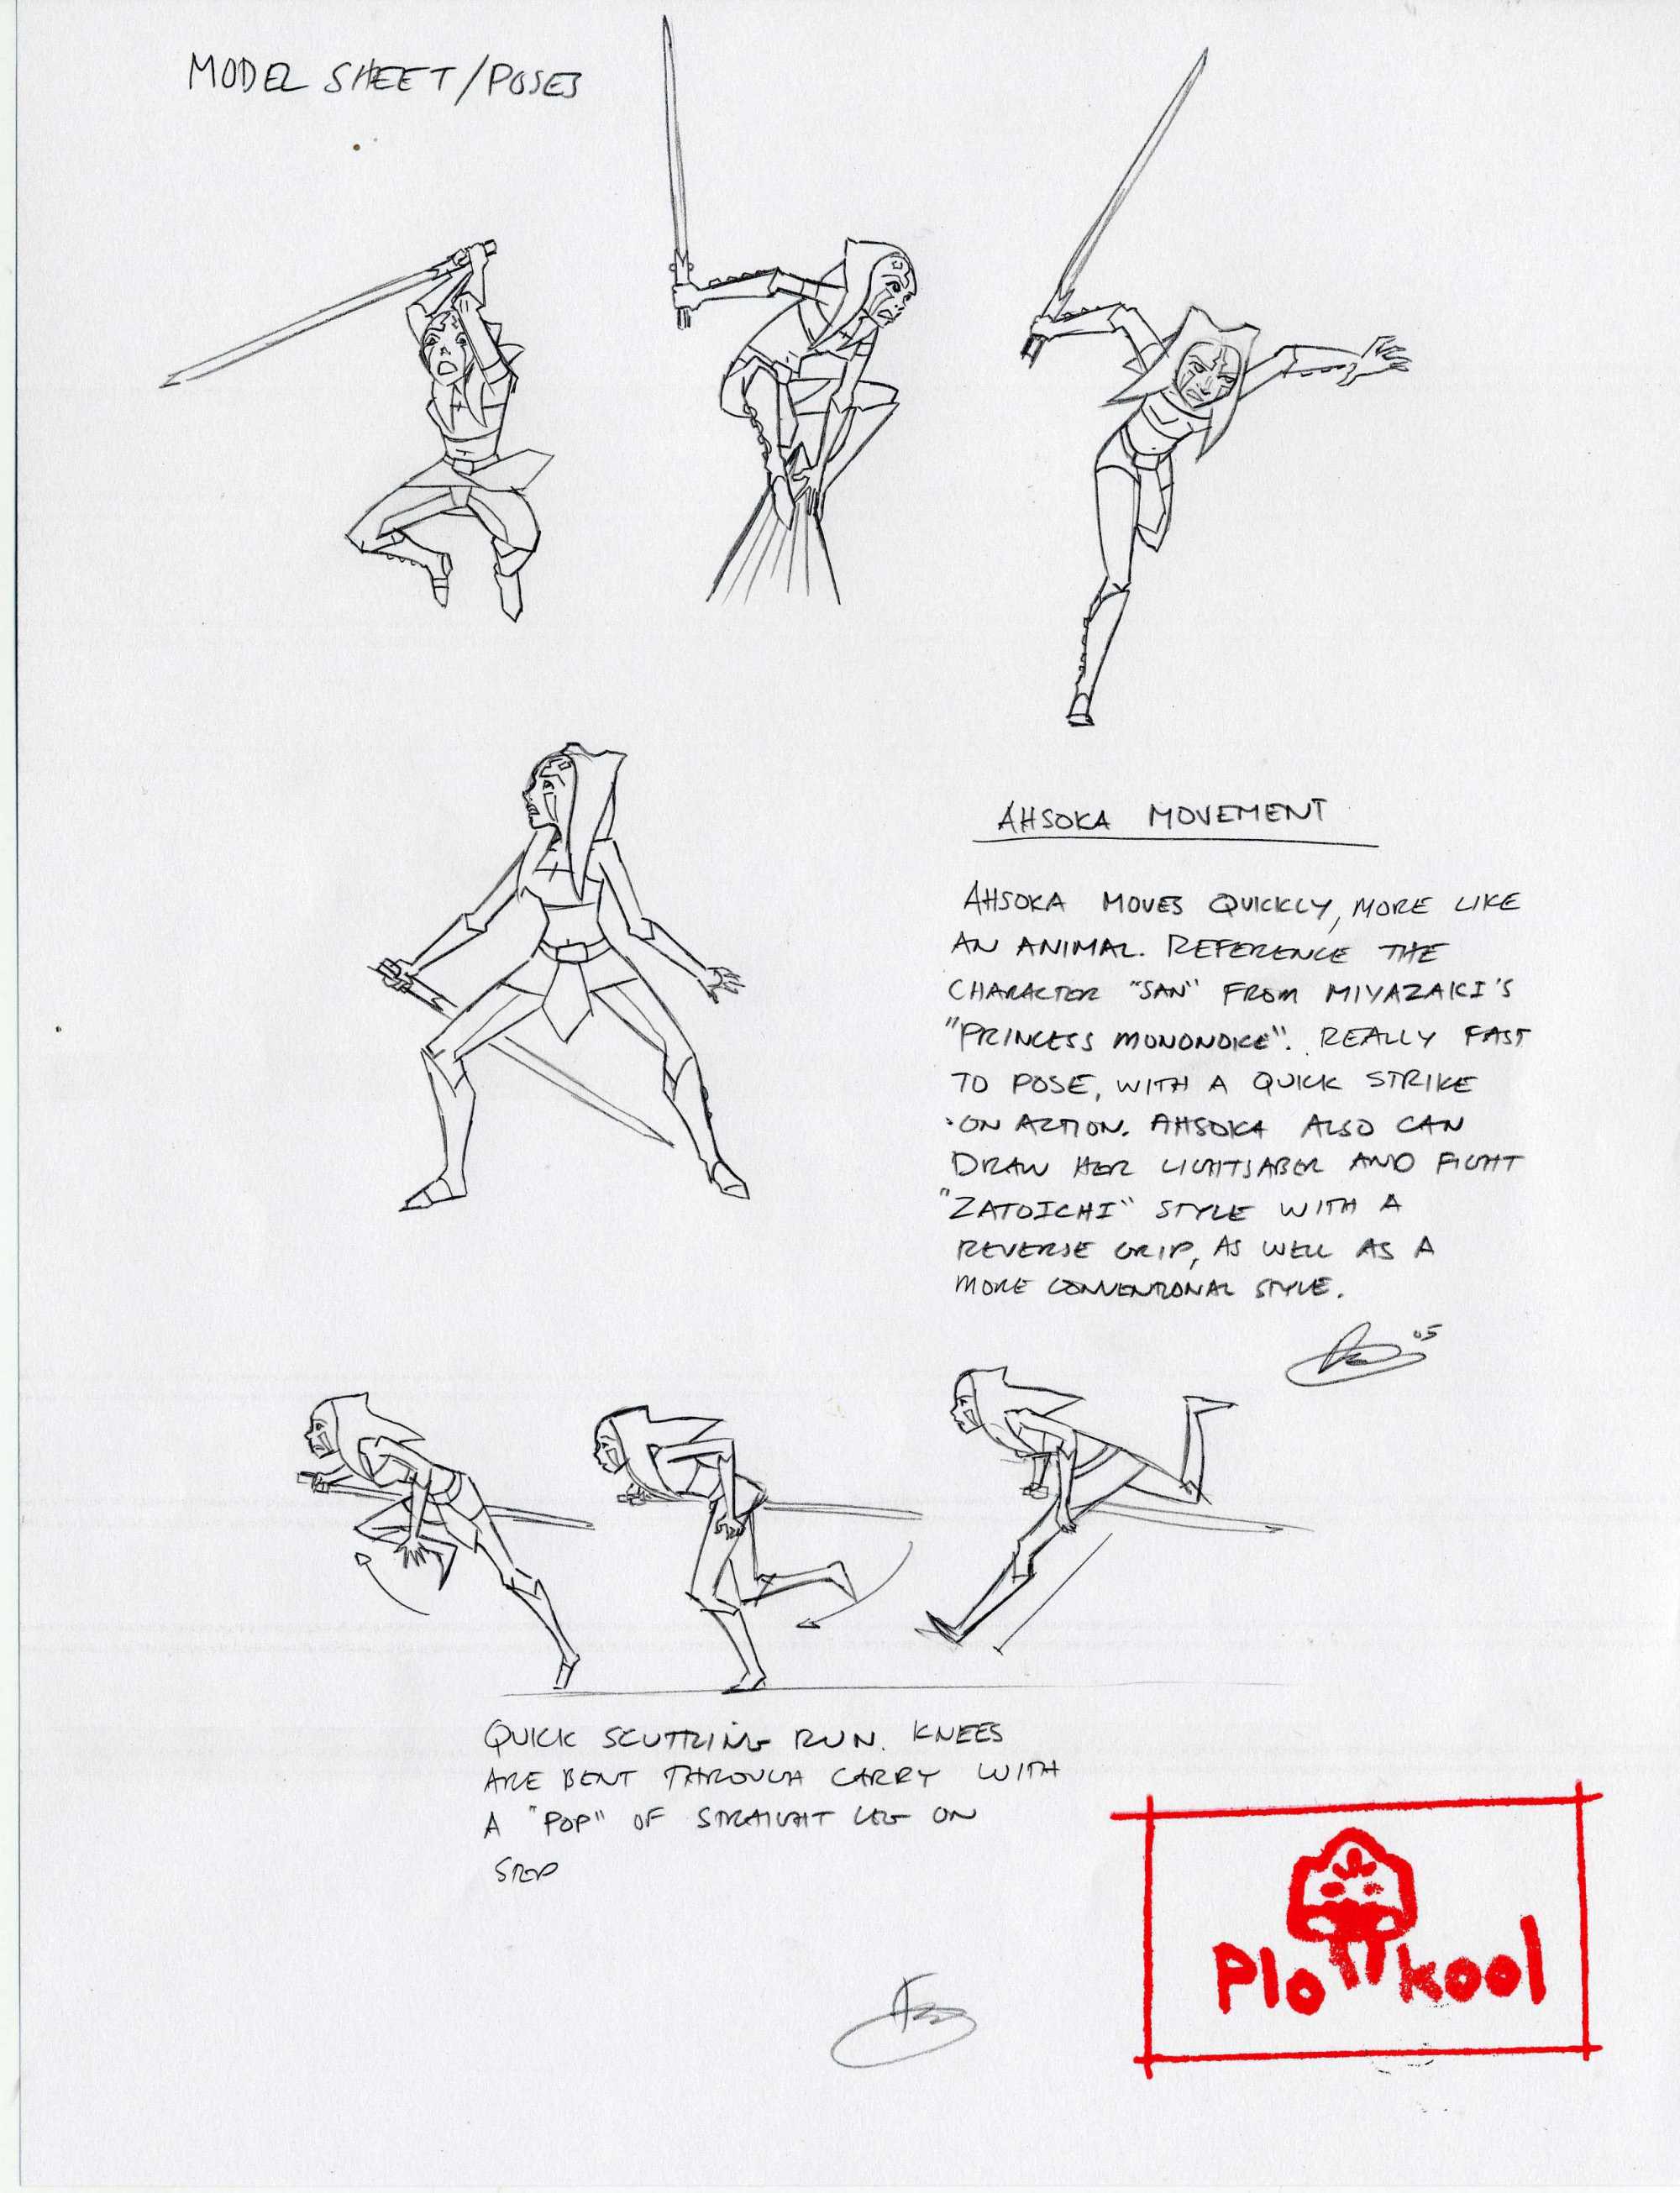 MODEL SHEET/POSES
AHSOKA MOVEMENT
AHSOKA MOVES QUICKLY, MORE LIKE
AN ANIMAL. REFERENCE THE
CHARACTER "SAN" FROM MIYAZAKI'S
"PRINCESS MONONOKE". REALLY FAST
TO POSE, WITH A QUICK STRIKE
ON ACTION. AHSOKA ALSO CAN
DRAW HER LIGHTSABER AND FIGHT
"ZATOICHI" STYLE WITH A
REVERSE GRIP, AS WELL AS A
MORE CONVENTIONAL STYLE.
'05
QUICK SCUTTLING RUN. KNEES
ARE BENT THROUGH CARRY WITH
A "POP" OF STRAIGHT LEG ON
STOP
Plo kool